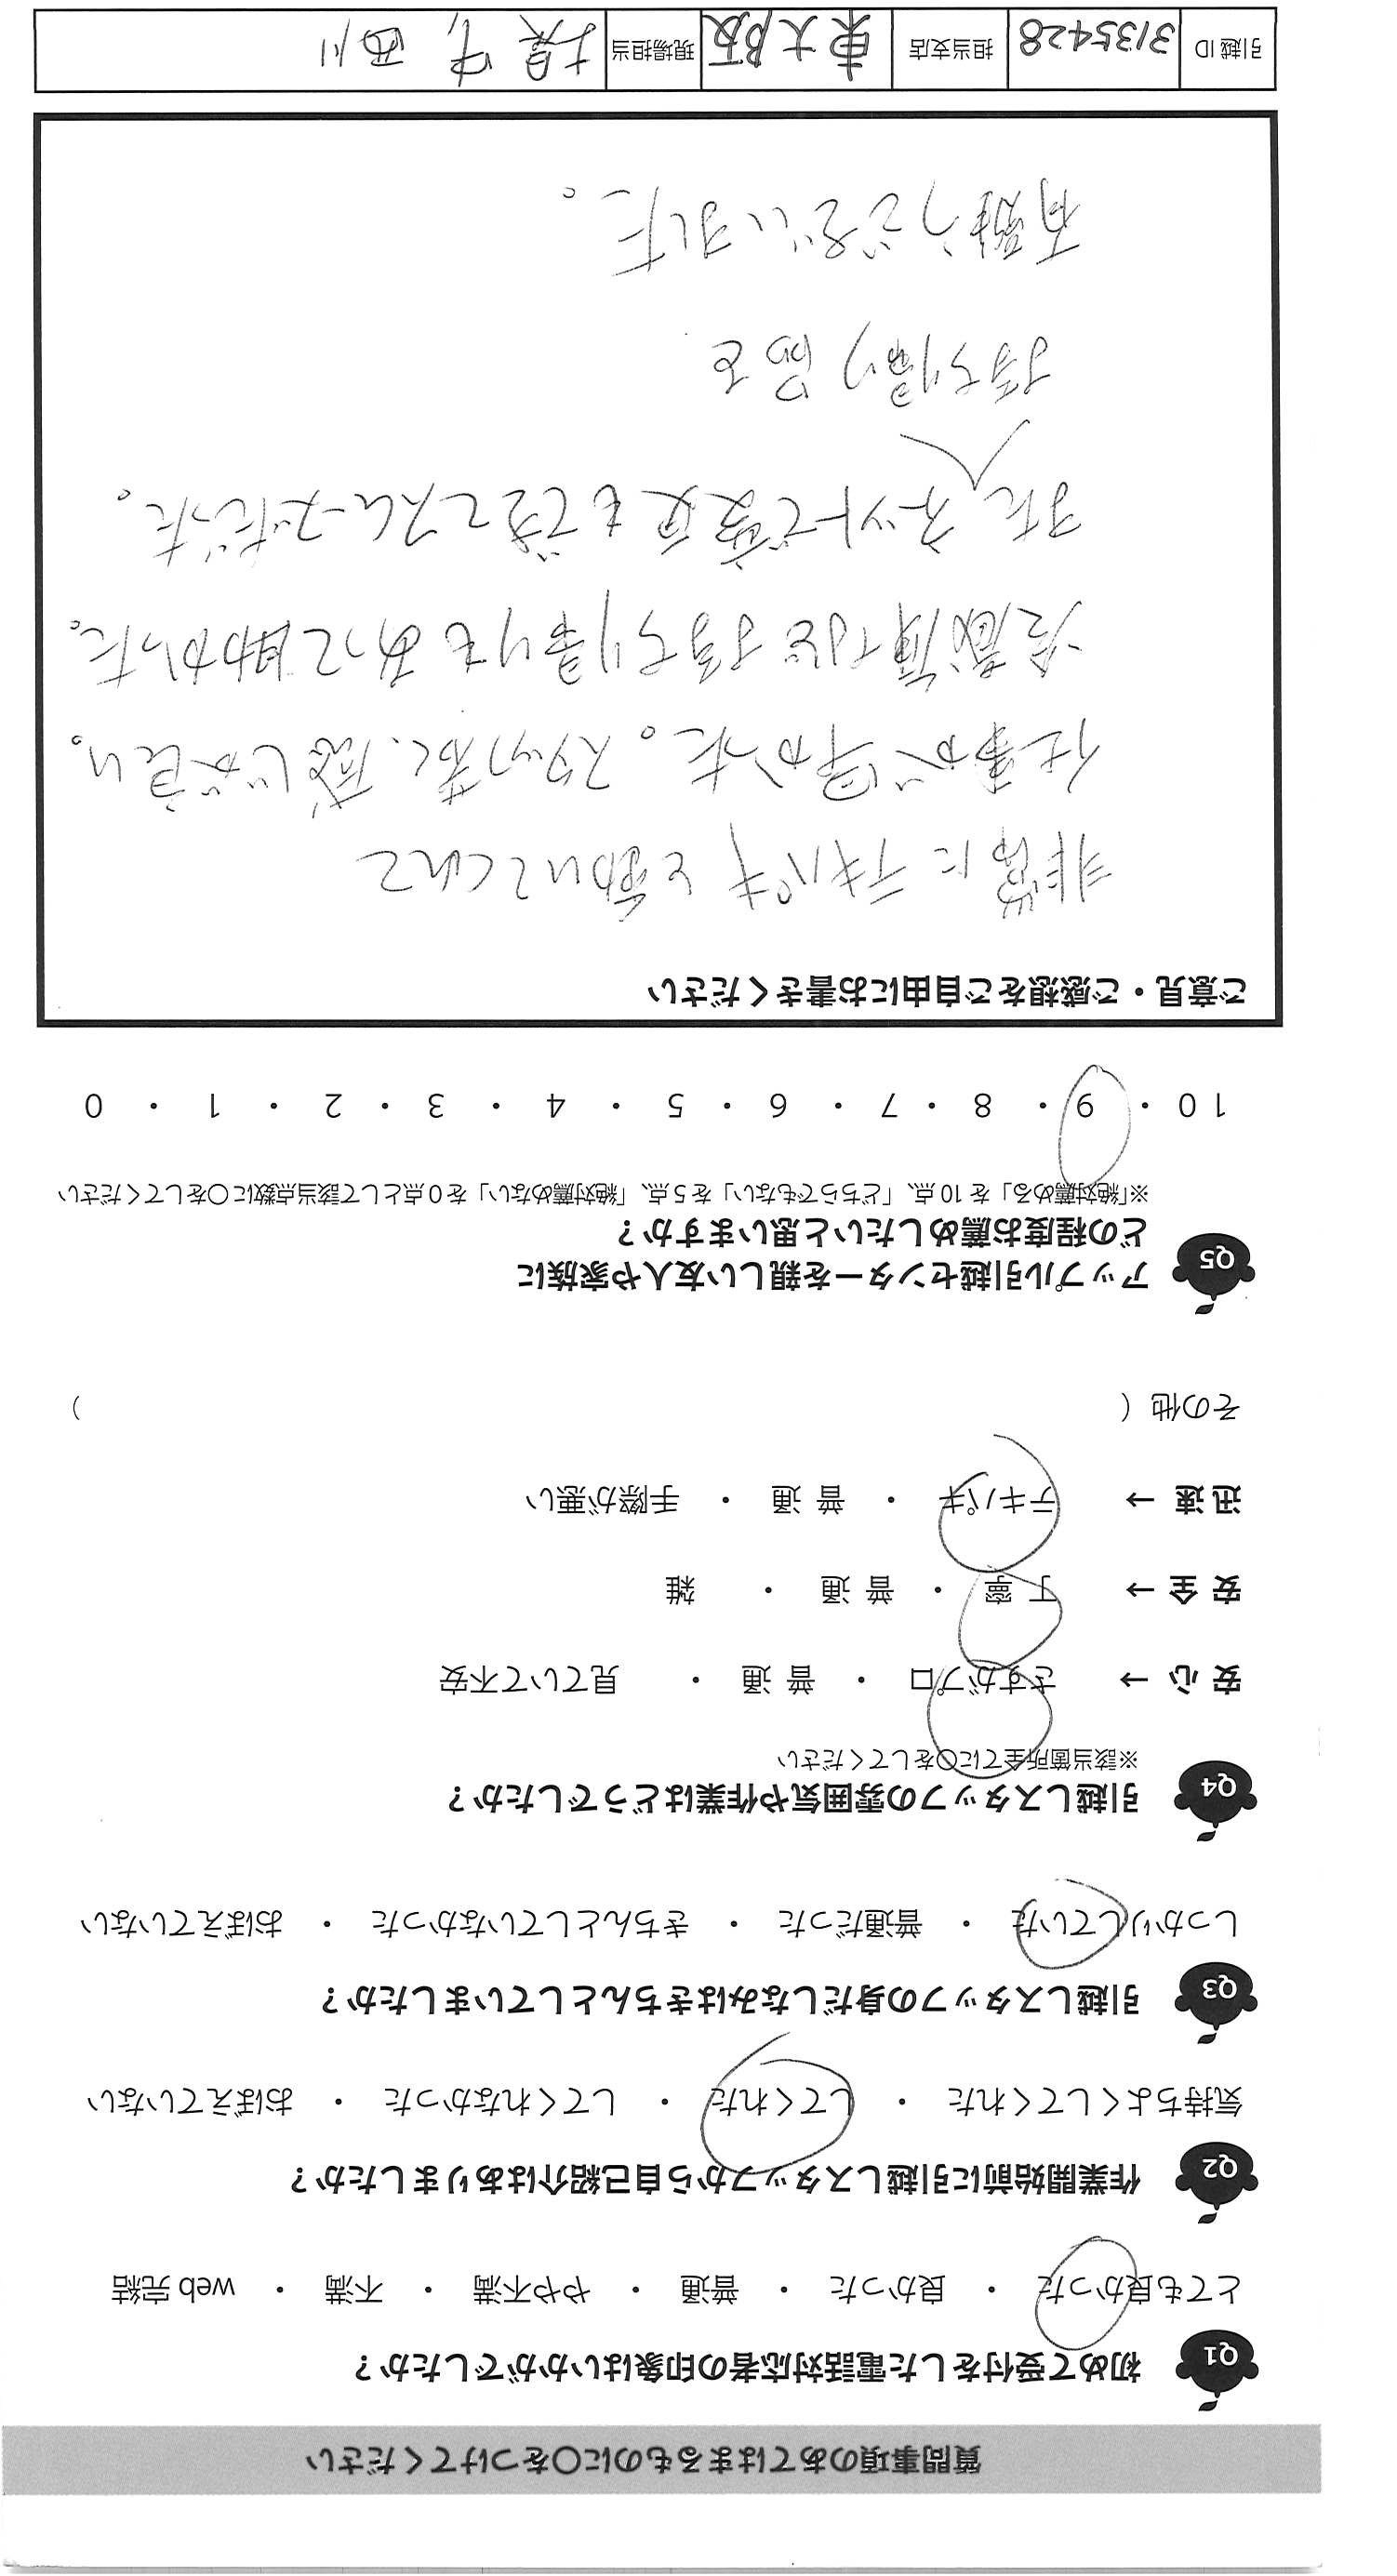 質問事項のあてはまるものに〇をつけてください
Q1 初めて受付をした電話対応者の印象はいかがでしたか？
とても良かった ・ 良かった ・ 普通 ・ やや不満 ・ 不満 ・ web 完結
Q2 作業開始前に引越しスタッフから自己紹介はありましたか？
気持ちよくしてくれた ・ してくれた ・ してくれなかった ・ おぼえていない
Q3 引越しスタッフの身だしなみはきちんとしていましたか？
しっかりしていた ・ 普通だった ・ きちんとしていなかった ・ おぼえていない
Q4 引越しスタッフの雰囲気や作業はどうでしたか？
※該当箇所全てに〇をしてください
安 心 → さすがプロ ・ 普 通 ・ 見ていて不安
安 全 → 丁 寧 ・ 普 通 ・ 雑
迅 速 → テキパキ ・ 普 通 ・ 手際が悪い
その他（ ）
Q5 アップル引越センターを親しい友人や家族に
どの程度お薦めしたいと思いますか？
※「絶対薦める」を 10 点、「どちらでもない」を 5 点、「絶対薦めない」を 0 点として該当点数に〇をしてください
10 ・ 9 ・ 8 ・ 7 ・ 6 ・ 5 ・ 4 ・ 3 ・ 2 ・ 1 ・ 0
ご意見・ご感想をご自由にお書きください
非常にテキパキと動いてくれて
仕事が早かった。スタッフ若く、感じが良い。
冷蔵庫など持ち帰りもあって助かった。
またネットで変更もできてスムーズだった。
持ち帰り品を
有難うございました。
引越 ID 3135428 担当支店 東大阪 現場担当 西川